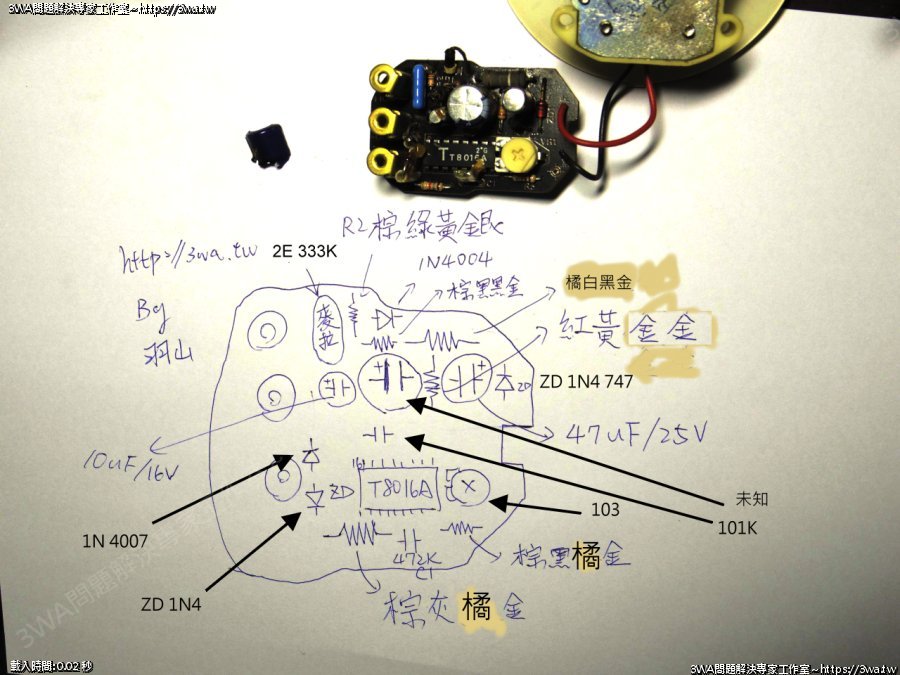 3WA問題解決專家工作室~https://3wa.tw
3WA問題解決專家工作室~https://3wa.tw
2G
TT8016A
R2棕綠黃銀
http://3wa.tw
2E 333K
1N4004
棕黑黑金
橘白黑金
By
羽山
麥拉
紅黃金金
ZD
ZD 1N4 747
47uF/25V
10uF/16V
16
T8016A
ZD
未知
101K
103
1N 4007
472K
C1
棕黑橘金
ZD 1N4
棕灰橘金
載入時間:0.02 秒
3WA問題解決專家工作室~https://3wa.tw